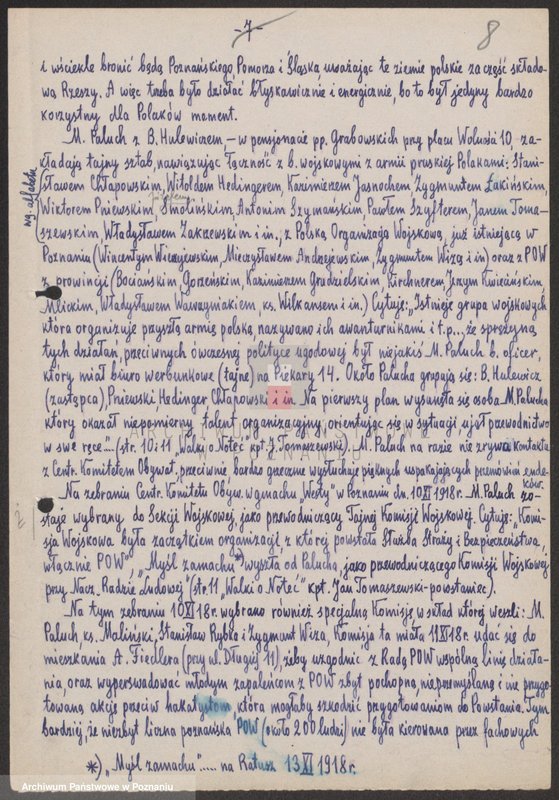 -7-
8
i wściekle bronić będą Poznańskiego, Pomorza i Śląska uważając te ziemie polskie za część składo-
wą Rzeszy. A więc trzeba było działać błyskawicznie i energicznie, bo to był jedyny bardzo
korzystny dla Polaków moment.
M. Paluch z B. Hulewiczem – w pensjonacie pp. Grabowskich przy placu Wolności 10, za-
kładają tajny sztab, nawiązując łączność z b. wojskowymi z armii pruskiej Polakami: Stani-
sławem Chłapowskim, Witoldem Hedingerem, Kazimierzem Jasnochem, Zygmuntem Łakińskim,
wg. alfabetu
Wiktorem Pniewskim, Smolińskim, Antonim Szymańskim, Pawłem Szyfterem, Janem Toma-
szewskim, Władysławem Zakrzewskim i in., z Polską Organizacją Wojskową, już istniejącą w
Poznaniu (Wincentym Wierzejewskim, Mieczysławem Andrzejewskim, Zygmuntem Wizą i in) oraz z POW
z prowincji (Bociańskim, Gorzeńskim, Kazimierzem Grudzielskim, Kirchnerem, Jerzym Kwiecińskim,
Mlickim, Władysławem Wawrzyniakiem, ks. Wilkansem i in.) Cytuję: "Istnieje grupa wojskowych
która organizuje przyszłą armię polską, nazywano ich awanturnikami i t.p... że sprężyną
tych działań, przeciwnych ówczesnej polityce ugodowej był niejakiś M. Paluch b. oficer,
który miał biuro werbunkowe (tajne) na Piekary 14. Około Palucha grupują się: B. Hulewicz
(zastępca), Pniewski, Hedinger, Chłapowski i in. Na pierwszy plan wysunęła się osoba M. Palucha
który okazał niepomierny talent organizacyjny, orientując się w sytuacji, ujął przewodnictwo
w swe ręce"... (str. 10 i 11 "Walki o Noteć" kpt. J. Tomaszewski). M. Paluch na razie nie zrywa kontaktu
z Centr. Komitetem Obywat., przeciwnie bardzo grzecznie wysłuchuje pięknych uspakajających przemówień ende-
ków.
Na zebraniu Centr. Komitetu Obyw. w gmachu "Westy" w Poznaniu dn. 10 XI 1918 r. M. Paluch zo-
staje wybrany do Sekcji Wojskowej, jako przewodniczący Tajnej Komisji Wojskowej. Cytuję: "Komi-
sja Wojskowa była zaczątkiem organizacji, z której powstała Służba Straży i Bezpieczeństwa,
włącznie POW". "Myśl zamachu *) wyszła od Palucha, jako przewodniczącego Komisji Wojskowej
przy Nacz. Radzie Ludowej" (str. 11 "Walki o Noteć" kpt. Jan Tomaszewski – powstaniec).
Na tym zebraniu 10 XI 18 r. wybrano również specjalną Komisję w skład której weszli: M.
Paluch, ks. Maliński, Stanisław Rybka i Zygmunt Wiza, Komisja ta miała 11 XI 18 r. udać się do
mieszkania A. Fiedlera (przy ul. Długiej 11), żeby uzgodnić z Radą POW wspólną linię działa-
nia, oraz wyperswadować młodym zapaleńcom z POW zbyt pochopną, nieprzemyślaną i nie przygo-
towaną akcję przeciw hakatystom, która mogłaby szkodzić przygotowaniom do Powstania. Tym
bardziej, że niezbyt liczna poznańska POW (około 200 ludzi) nie była kierowana przez fachowych
*) "Myśl zamachu"..... na Ratusz 13 XI 1918 r.
Archiwum Państwowe w Poznaniu